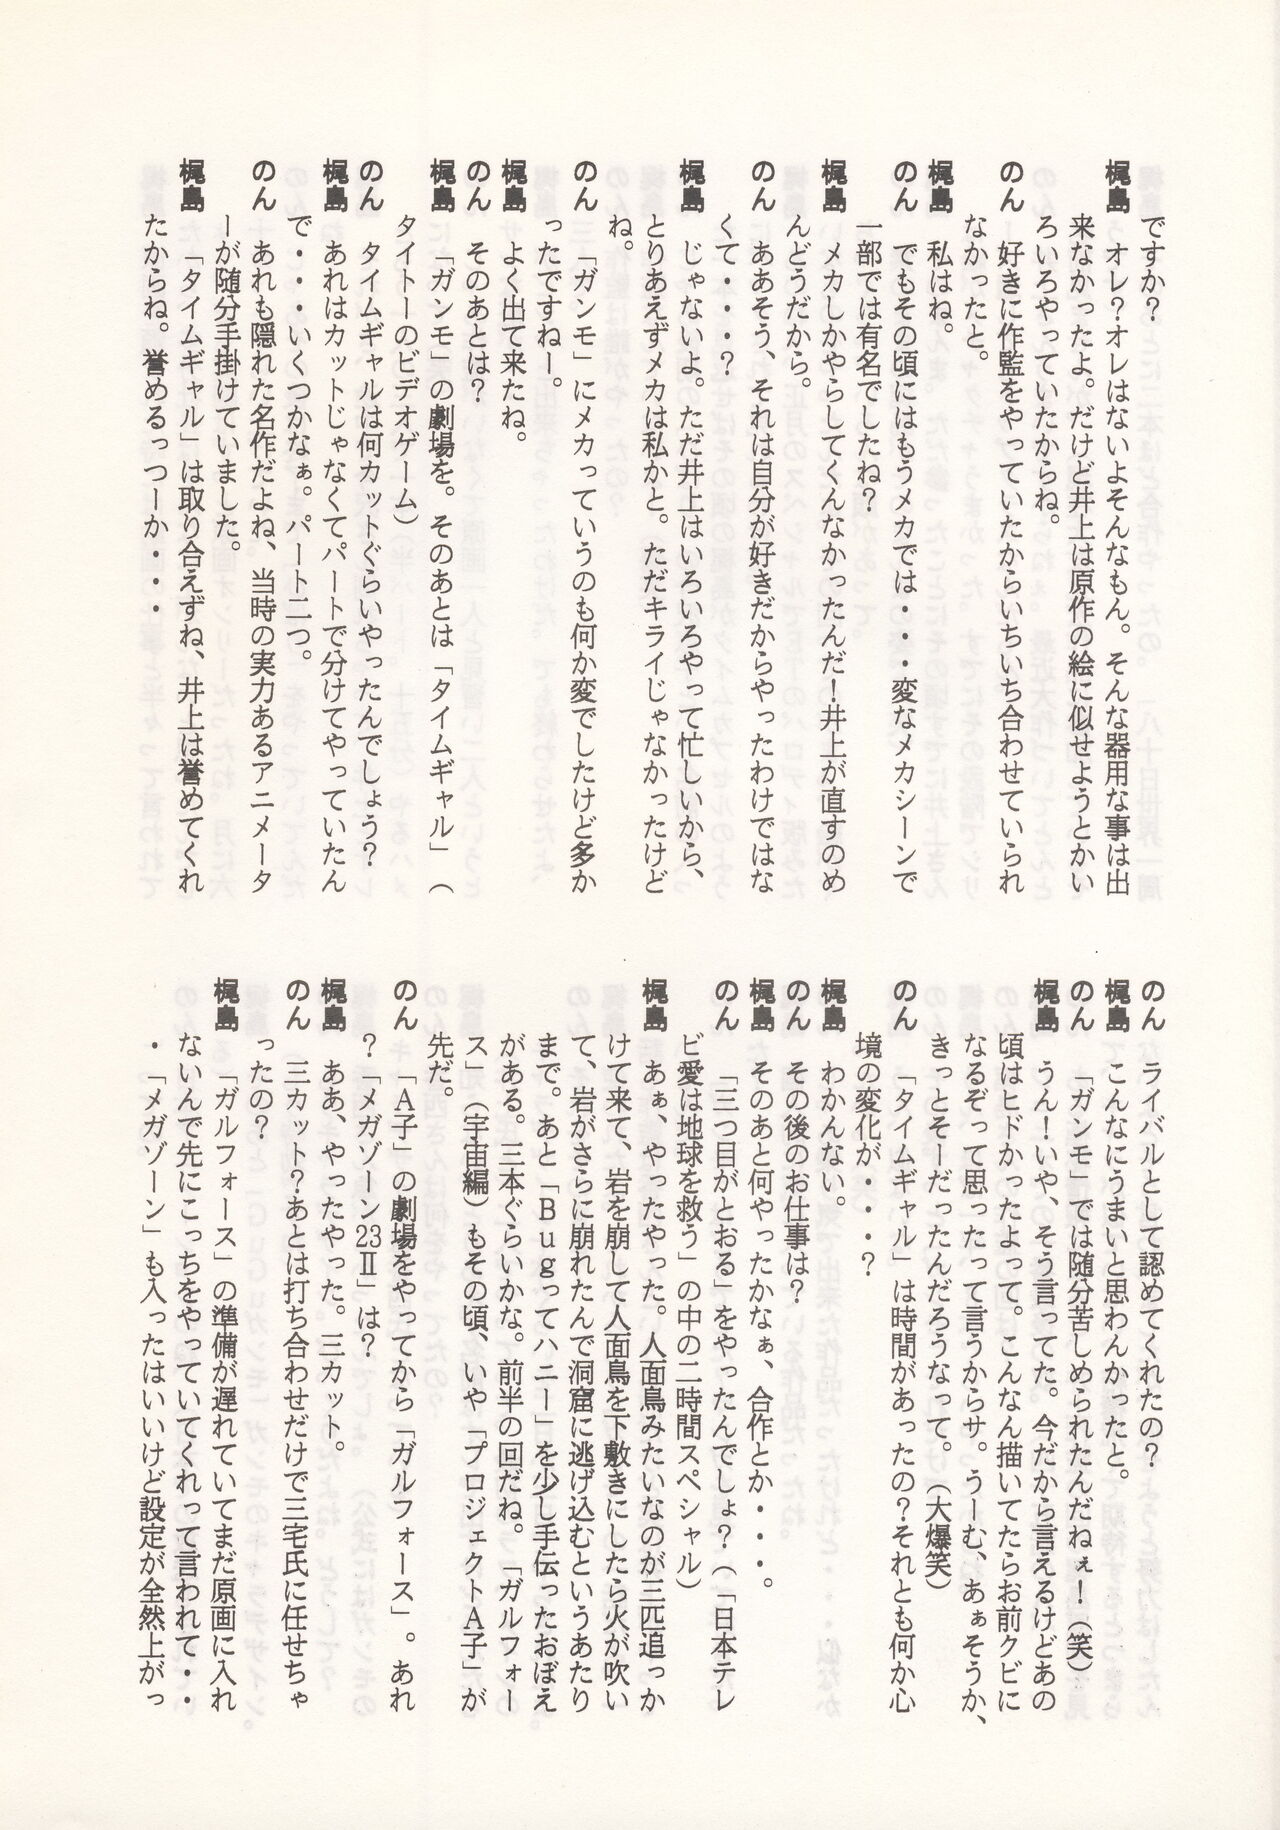 ですか？
梶島　オレ？オレはないよそんなもん。そんな器用な事は出
来なかったよ。だけど井上は原作の絵に似せようとかい
ろいろやっていたからね。
のん　好きに作監をやっていたからいちいち合わせていられ
なかったと。
梶島　私はね。
のん　でもその頃にはもうメカでは・・・変なメカシーンで
一部では有名でしたね？
梶島　メカしかやらしてくんなかったんだ！井上が直すのめ
んどうだから。
のん　ああそう、それは自分が好きだからやったわけではな
くて・・・？
梶島　じゃないよ。ただ井上はいろいろやって忙しいから、
とりあえずメカは私かと。ただキライじゃなかったけど
ね。
のん　「ガンモ」にメカっていうのも何か変でしたけど多か
ったですねー。
梶島　よく出て来たね。
のん　そのあとは？
梶島　「ガンモ」の劇場を。そのあとは「タイムギャル」（
タイトーのビデオゲーム）
のん　タイムギャルは何カットぐらいやったんでしょう？
梶島　あれはカットじゃなくてパートで分けてやっていたん
で・・・いくつかなぁ。パート二つ。
のん　あれも隠れた名作だよね、当時の実力あるアニメータ
ーが随分手掛けていました。
梶島　「タイムギャル」は取り合えずね、井上は誉めてくれ
たからね。誉めるっつーか・・・
のん　ライバルとして認めてくれたの？
梶島　こんなにうまいと思わんかったと。
のん　「ガンモ」では随分苦しめられたんだねぇ！（笑）
梶島　うん！いや、そう言ってた。今だから言えるけどあの
頃はヒドかったよって。こんなん描いてたらお前クビに
なるぞって思ったって言うからサ。うーむ、あぁそうか、
きっとそーだったんだろうなって。（大爆笑）
のん　「タイムギャル」は時間があったの？それとも何か心
境の変化が・・・？
梶島　わかんない。
のん　その後のお仕事は？
梶島　そのあと何やったかなぁ、合作とか・・・。
のん　「三つ目がとおる」をやったんでしょ？（「日本テレ
ビ愛は地球を救う」の中の二時間スペシャル）
梶島　あぁ、やったやった。人面鳥みたいなのが三匹追っか
けて来て、岩を崩して人面鳥を下敷きにしたら火が吹い
て、岩がさらに崩れたんで洞窟に逃げ込むというあたり
まで。あと「Ｂｕｇってハニー」を少し手伝ったおぼえ
がある。三本ぐらいかな。前半の回だね。「ガルフォー
ス」（宇宙編）もその頃、いや「プロジェクトＡ子」が
先だ。
のん　「Ａ子」の劇場をやってから「ガルフォース」。あれ
？「メガゾーン23Ⅱ」は？
梶島　ああ、やったやった。三カット。
のん　三カット？あとは打ち合わせだけで三宅氏に任せちゃ
ったの？
梶島　「ガルフォース」の準備が遅れていてまだ原画に入れ
ないんで先にこっちをやっていてくれって言われて・・
・「メガゾーン」も入ったはいいけど設定が全然上がっ